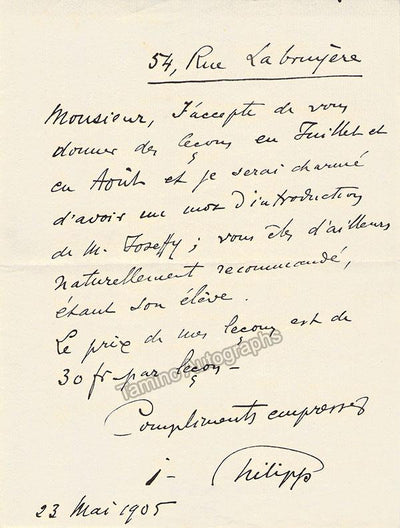 54, Rue Labruyère
Monsieur, J'accepte de vous
donner des leçons en Juillet et
en Août et je serai charmé
d'avoir un mot d'introduction
de M. Joseffy; vous êtes d'ailleurs
naturellement recommandé,
étant son élève.
Le prix de mes leçons est de
30 fr par leçon -
Tamino Autographs
Compliments empressés
i - Philipp
23 Mai 1905